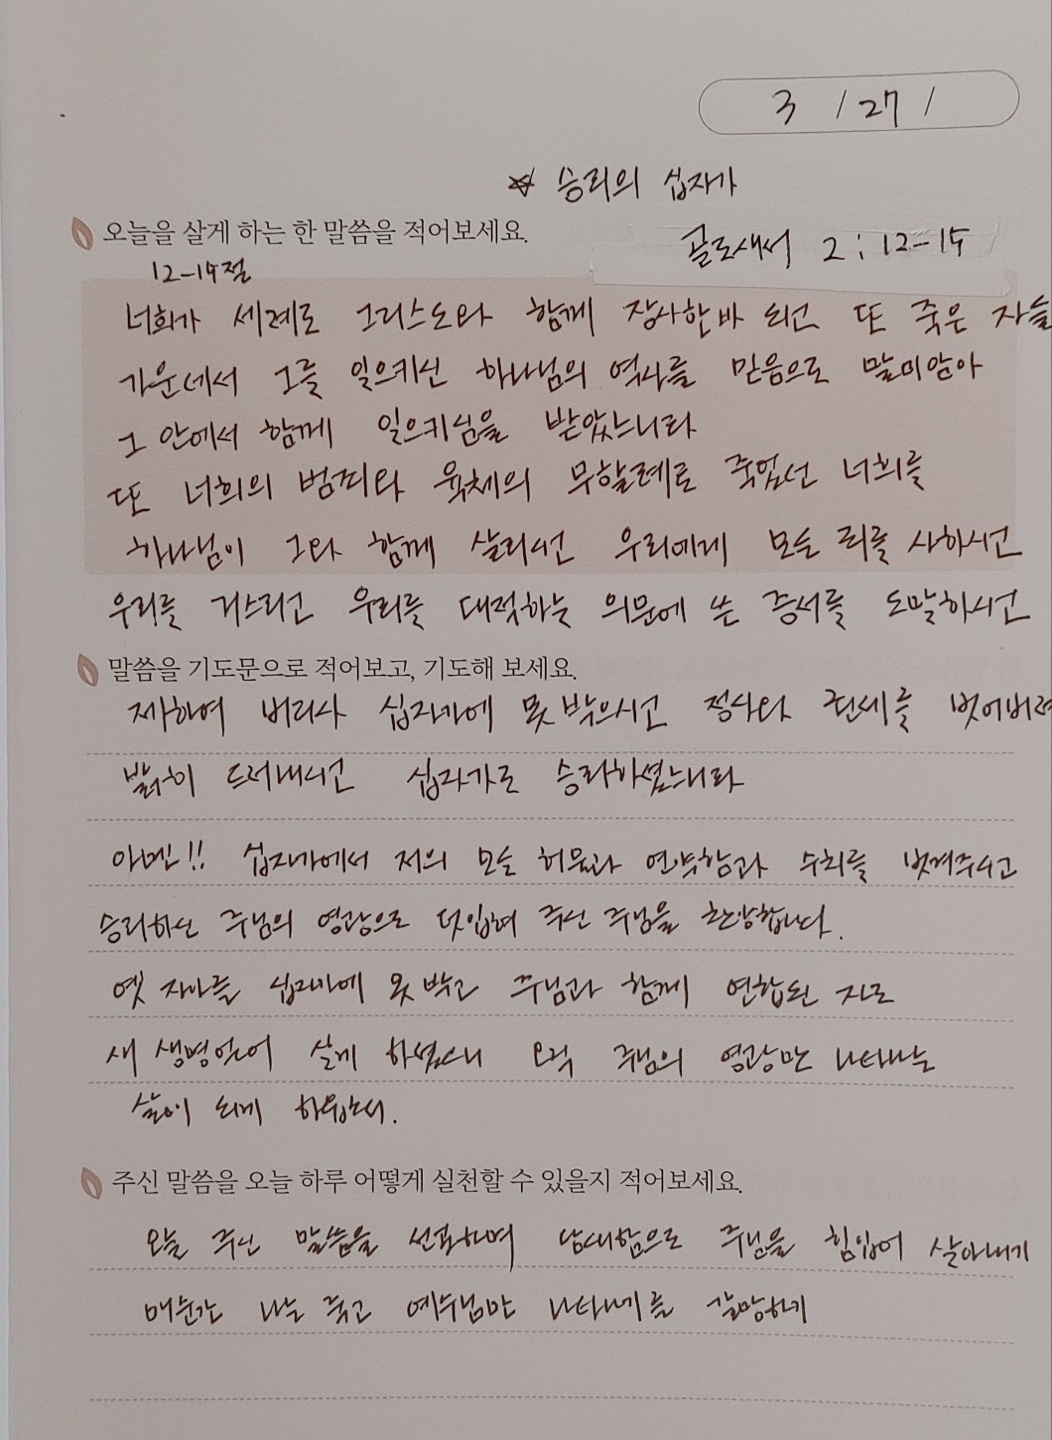 3 / 27 /
☆ 승리의 십자가
오늘을 살게 하는 한 말씀을 적어보세요.
골로새서 2 : 12-15
12-15절
너희가 세례로 그리스도와 함께 장사한바 되고 또 죽은 자들
가운데서 그를 일으키신 하나님의 역사를 믿음으로 말미암아
그 안에서 함께 일으키심을 받았느니라
또 너희의 범죄와 육체의 무할례로 죽었던 너희를
하나님이 그와 함께 살리시고 우리에게 모든 죄를 사하시고
우리를 거스리고 우리를 대적하는 의문에 쓴 증서를 도말하시고
말씀을 기도문으로 적어보고, 기도해 보세요.
제하여 버리사 십자가에 못 박으시고 정사와 권세를 벗어버려
밝히 드러내시고 십자가로 승리하셨느니라
아멘!! 십자가에서 저의 모든 허물과 연약함과 수치를 벗겨주시고
승리하신 주님의 영광으로 덧입혀 주신 주님을 찬양합니다.
옛 자아를 십자가에 못 박고 주님과 함께 연합된 자로
새 생명얻어 살게 하셨으니 오직 주님의 영광만 나타나는
삶이 되게 하옵소서.
주신 말씀을 오늘 하루 어떻게 실천할 수 있을지 적어보세요.
오늘 주신 말씀을 선포하며 담대함으로 주님을 힘입어 살아내기
매순간 나는 죽고 예수님만 나타나기를 갈망하기